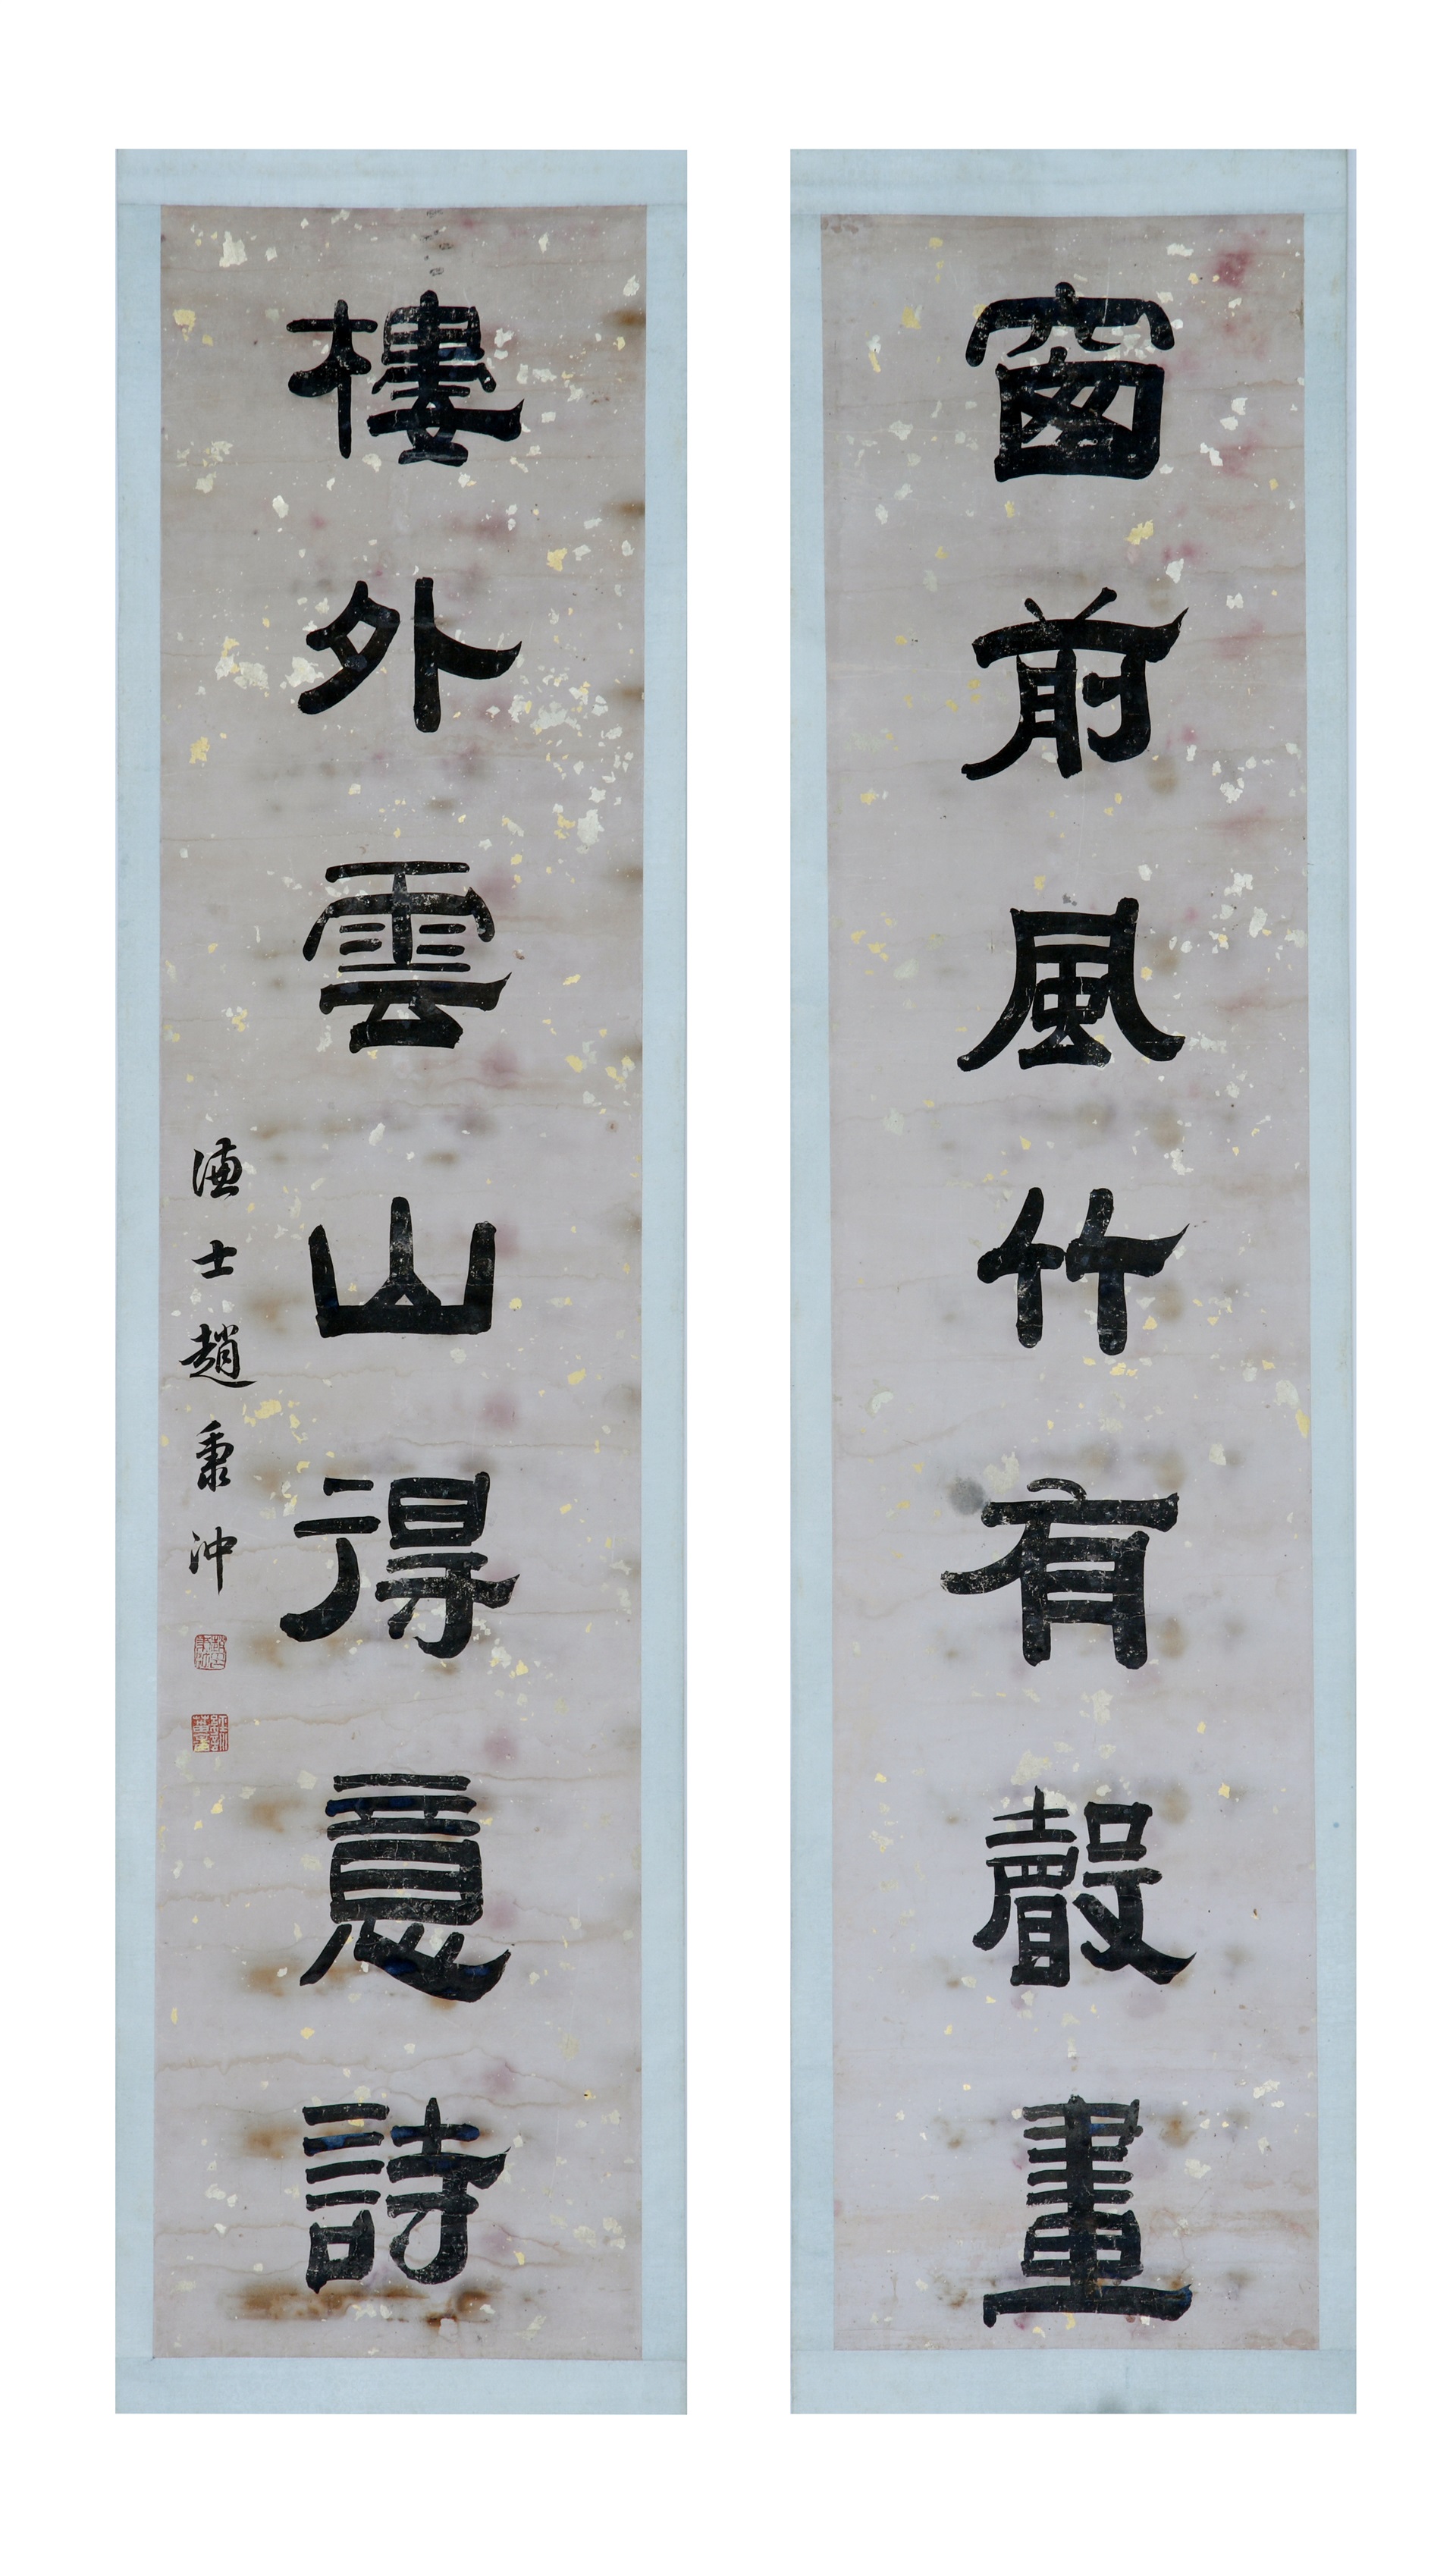 窗前風竹有聲畫
樓外雲山得意詩
謙士趙秉沖